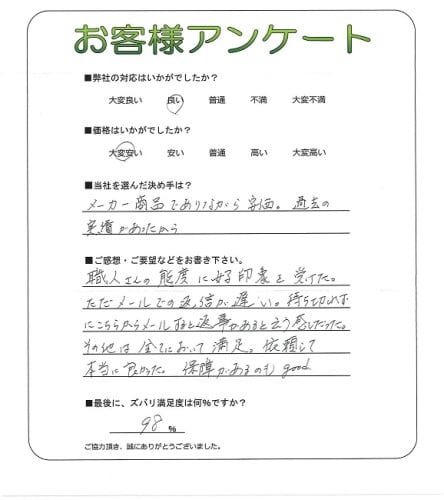 お客様アンケート
■弊社の対応はいかがでしたか?
大変良い 良い 普通 不満 大変不満
■価格はいかがでしたか?
大変安い 安い 普通 高い 大変高い
■当社を選んだ決め手は?
メーカー商品でありながら安価。過去の
実績があったから
■ご感想・ご要望などをお書き下さい。
職人さんの態度に好印象を受けた。
ただメールでの返信が遅い。待ち切れず
にこちらからメールすると返事があると云う感じだった。
その他は全てにおいて満足。依頼して
本当に良かった。保障があるのもgood
■最後に、ズバリ満足度は何%ですか?
98 %
ご協力頂き、誠にありがとうございました。